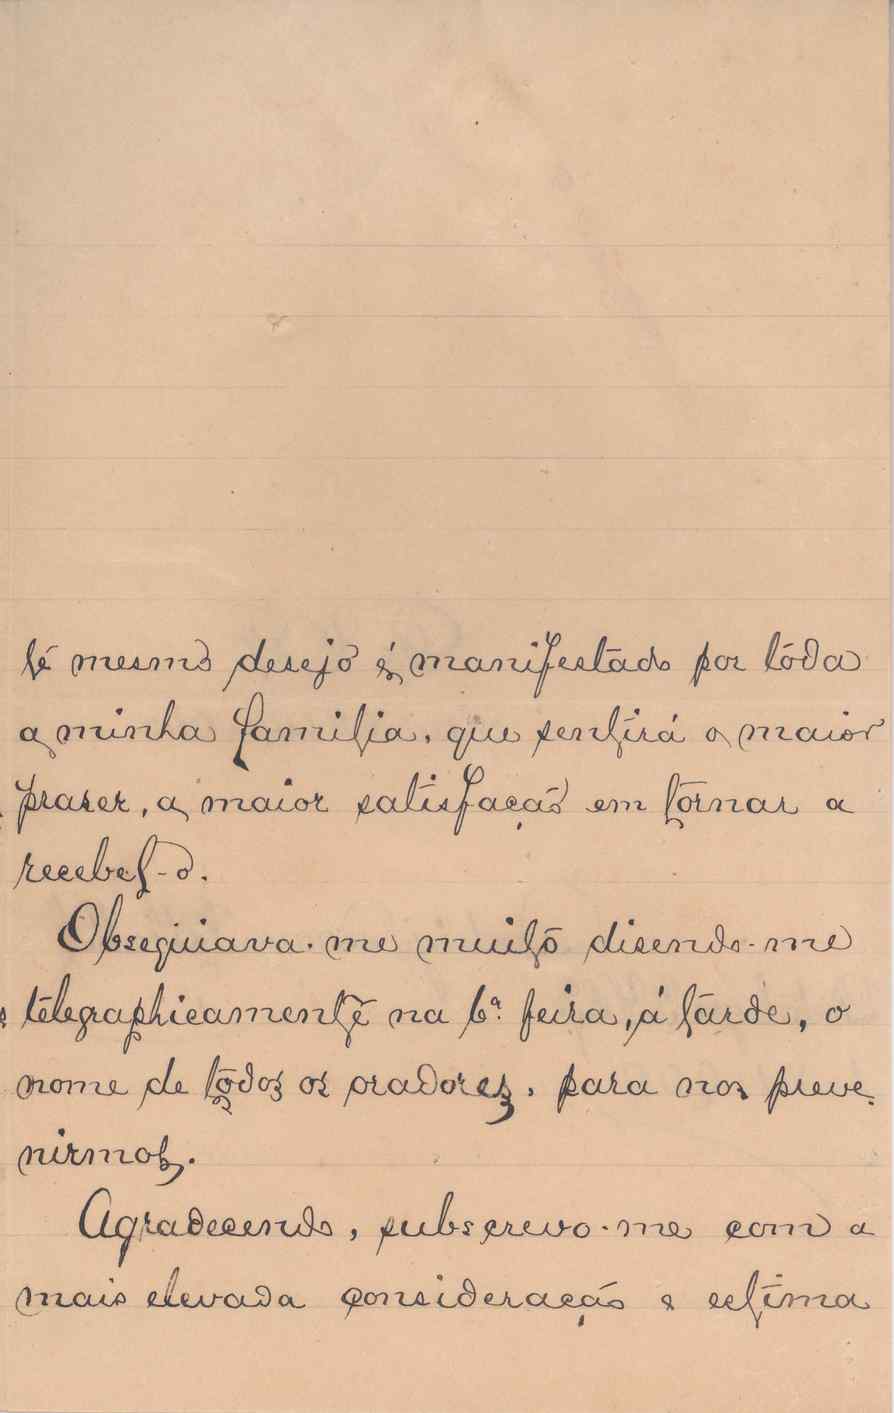 te mesmo desejo é manifestado por tôda
a minha familia, que sentirá o maior
praser, a maior satisfação em tornar a
recebel-o.
Obsequiava-me muito disendo-me
telegraphicamente na 6ª feira, á tarde, o
nome de todos os oradores, para nos preve-
nirmos.
Agradecendo, subscrevo-me com a
mais elevada consideração e estima